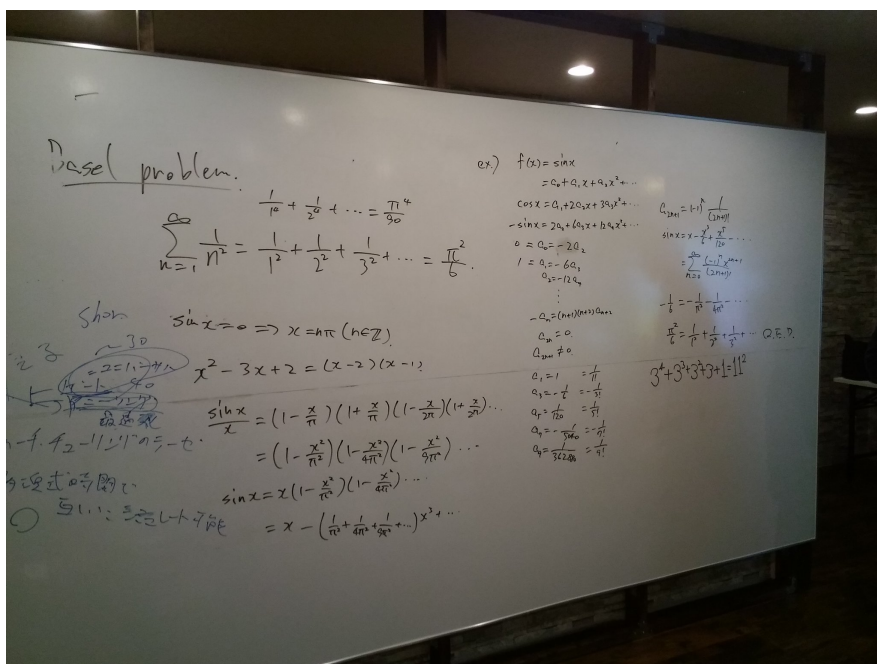 Basel problem.
1/1⁴ + 1/2⁴ + ⋯ = π⁴/90
∞∑n=1 1/n² = 1/1² + 1/2² + 1/3² + ⋯ = π²/6.
sin x = 0 => x = nπ (n∈ℤ)
x² - 3x + 2 = (x-2)(x-1)
sin x/x = (1 - x/π)(1 + x/π)(1 - x/2π)(1 + x/2π)⋯
= (1 - x²/π²)(1 - x²/4π²)(1 - x²/9π²)⋯
sin x = x(1 - x²/π²)(1 - x²/4π²)⋯
= x - (1/π² + 1/4π² + 1/9π² + ⋯)x³ + ⋯
show
ex.) f(x) = sin x
= a₀ + a₁x + a₂x² + ⋯
cos x = a₁ + 2a₂x + 3a₃x² + ⋯
-sin x = 2a₂ + 6a₃x + 12a₄x² + ⋯
0 = a₀ = -2a₂
1 = a₁ = -6a₃
a₂ = -12a₄
⋮
-aₙ = (n+1)(n+2)aₙ₊₂
a₂ₙ = 0
a₂ₙ₊₁ ≠ 0
a₁ = 1 = 1/1!
a₃ = -1/6 = -1/3!
a₅ = 1/120 = 1/5!
a₇ = -1/5040 = -1/7!
a₉ = 1/362880 = 1/9!
a₂ₙ₊₁ = (-1)ⁿ 1/(2n+1)!
sin x = x - x³/6 + x⁵/120 - ⋯
= ∞∑n=0 (-1)ⁿx²ⁿ⁺¹/(2n+1)!
-1/6 = -1/π² - 1/4π² - ⋯
π²/6 = 1/1² + 1/2² + 1/3² + ⋯ Q.E.D.
3⁴+3³+3²+3+1=11²